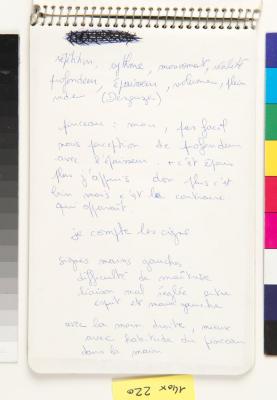 répétition, rythme, mouvement,
profondeur, épaisseur, volume, plein
vide (
pinceau : mou, pas facil
nous perception de profondeur
avec l'épaisseur. + c'est épais
plus j'appuis donc plus c'est
bien mais c'est le contraire
qui apparait.
je compte les signes
signes mains gauches
difficulté de maîtrise
liaison mal réglée entre
esprit et main gauche
avec la main droite, mieux
avec habitude du pinceau
dans la main
140 x 220